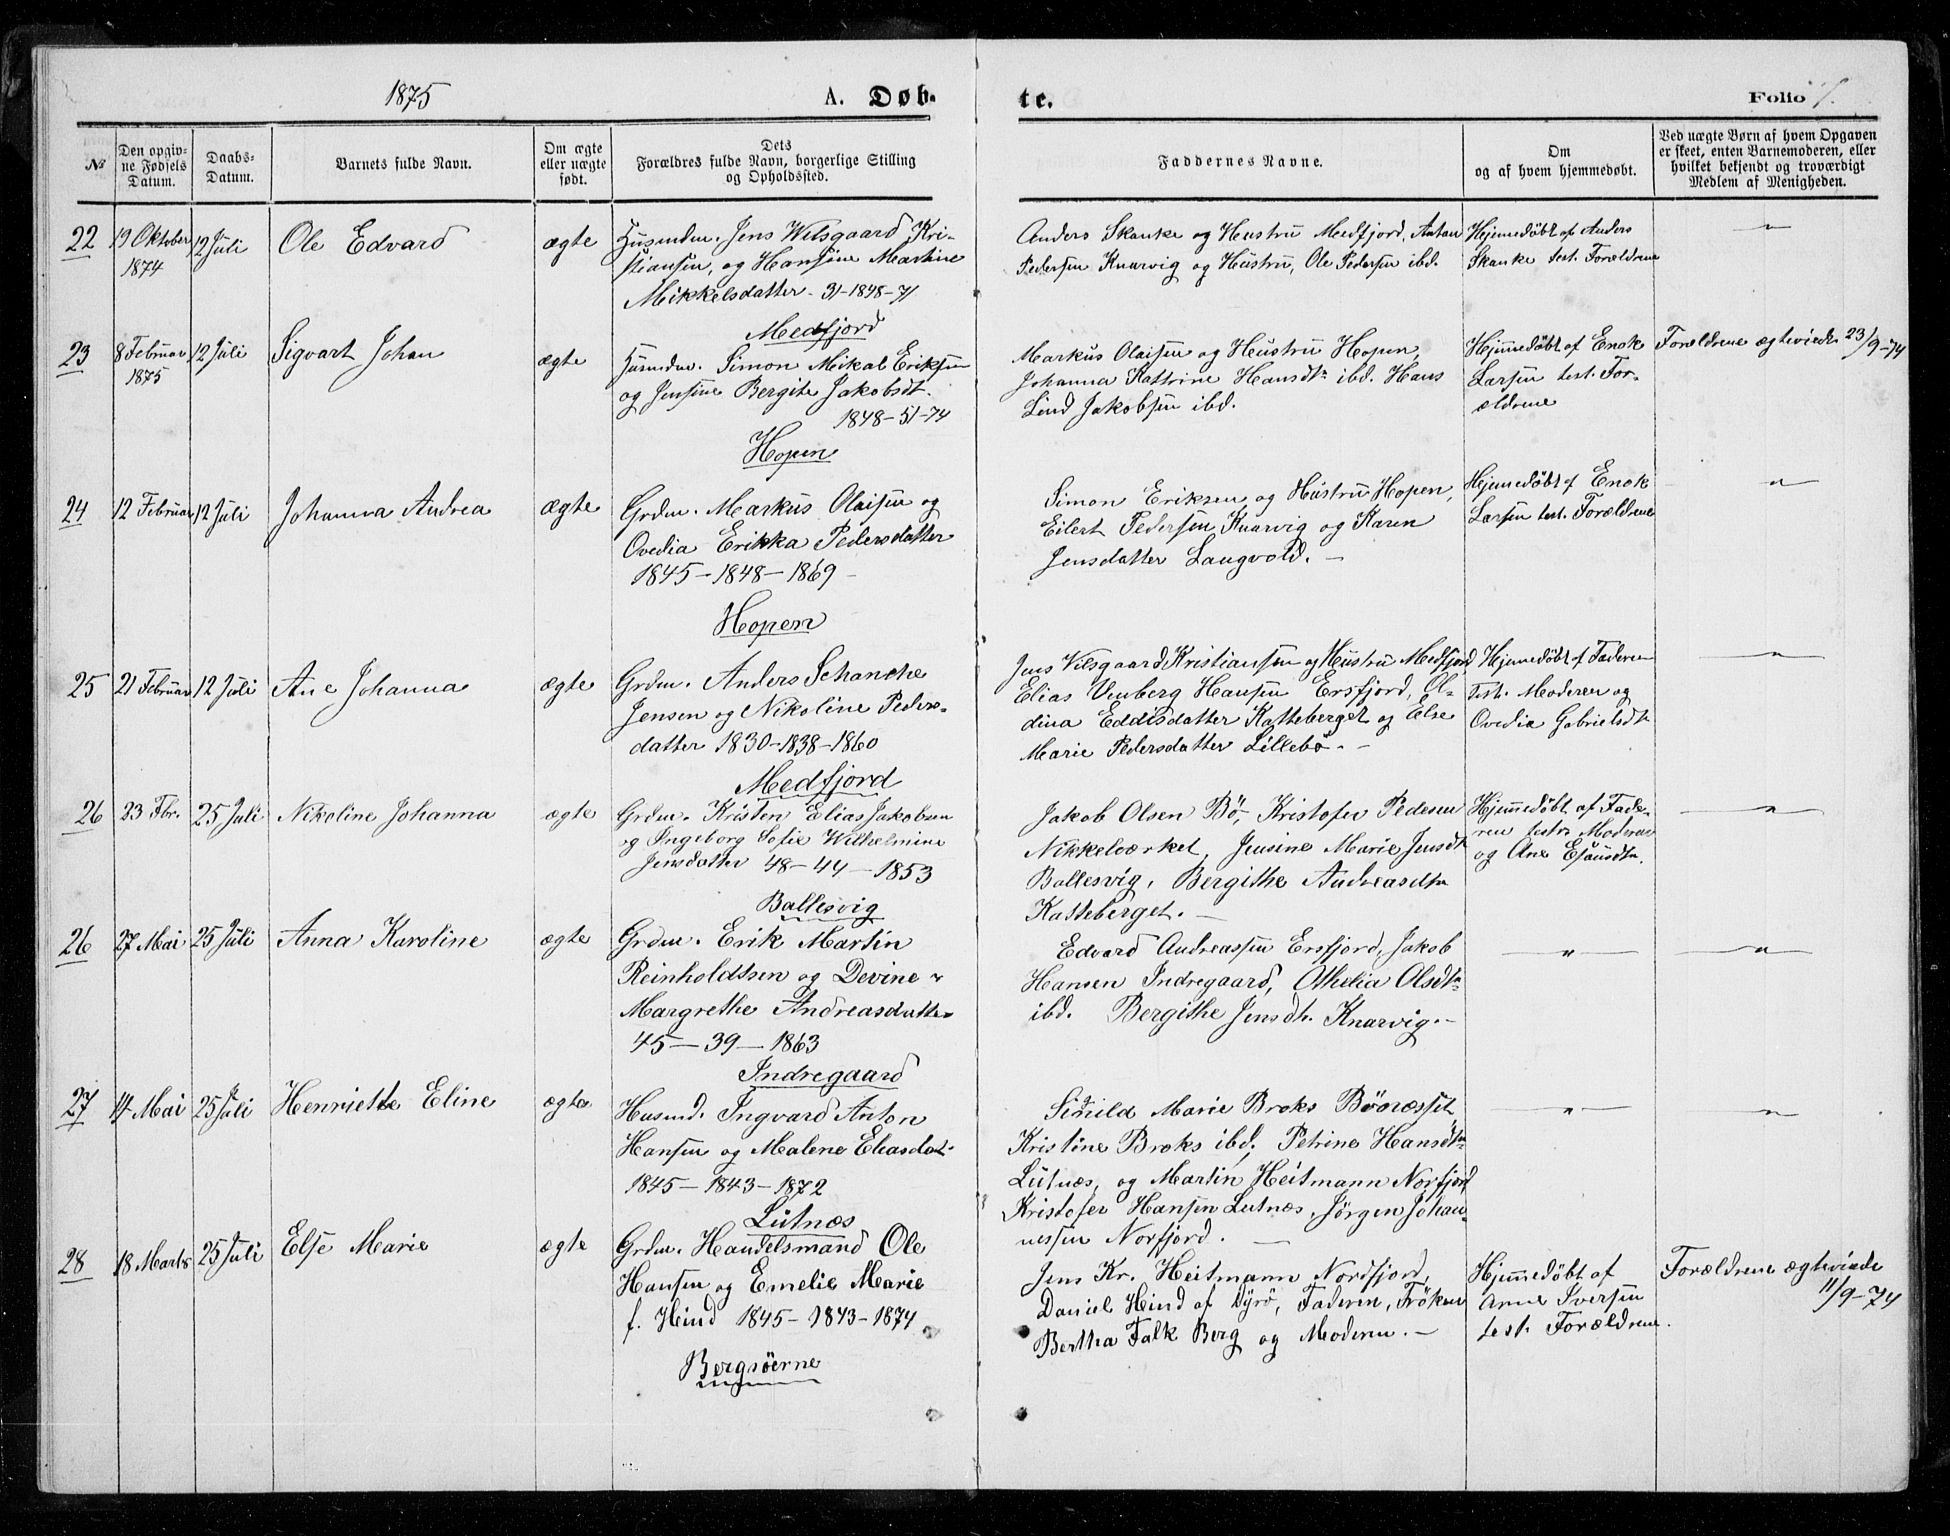 1875
A. Døb-
te.
Folio 7.
No
Den opgiv-
ne Fødsels
Datum.
Daabs-
Datum.
Barnets fulde Navn.
Om ægte
eller uægte
født.
Dets
Forældres fulde Navn, borgerlige Stilling
og Opholdssted.
Faddernes Navne.
Om
og af hvem hjemmedøbt.
Ved uægte Børn af hvem Opgaven
er skeet, enten Barnemoderen, eller
hvilket bekjendt og troværdigt
Medlem af Menigheden.
22
19 Oktober
1874
12 Juli
Ole Edvard
ægte
Husmdm. Jens Wilsgaard Kri-
stiansen, og Hansine Martine
Mikkelsdatter - 31-1848-71
Medfjord
Anders Skanke og Hustru Medfjord, Antan
Pedersen Knarvig og Hustru, Ole Pedersen ibd.
Hjemmedöbt af Anders
Skanke test. Forældrene
"
23
8 Februar
1875
12 Juli
Sigvart Johan
ægte
Husmdm. Simon Mikal Eriksen
og Jensine Bergite Jakobsdt.
1848-51-74
Hopen
Markus Olaisen og Hustru Hopen,
Johanna Kattrine Hansdtr ibd. Hans
Lind Jakobsen ibd.
Hjemmedöbt af Enok
Larsen test. For-
ældrene
Forældrene ægteviede 23/9-74
24
12 Februar
12 Juli
Johanna Andrea
ægte
Grdm. Markus Olaisen og
Ovedia Erikka Pedersdatter
1845-1848-1869 -
Hopen
Simon Eriksen og Hustru Hopen,
Eilert Pedersen Knarvig og Karen
Jensdatter Laugvold. -
Hjemmedöbt af Enok
Larsen test. Forældrene
"
25
21 Februar
12 Juli
Ane Johanna
ægte
Grdm. Anders Schanche
Jensen og Nikoline Peders-
datter 1830-1838-1860
Medfjord
Jens Vilsgaard Kristiansen og Hustru Medfjord
Elias Venberg Hansen Ersfjord, Ol-
dina Eddisdatter Katteberget og Else
Marie Pedersdatter Lillebö. -
Hjemmedöbt af Faderen
test. Moderen og
Ovedia Gabrielsdtr
"
26
23 Fbr.
25 Juli
Nikoline Johanna
ægte
Grdm. Kristen Elias Jakobsen
og Ingeborg Sofie Wilhelmine
Jensdatter 48-44-1853
Ballesvig
Jakob Olsen Bö, Kristofer Pedesen
Nikkelværket, Jensine Marie Jensdt
Ballesvig, Bergithe Andreasdtr
Katteberget. -
Hjemmedöbt af Fade-
ren testr Moderen
og Ane Esausdtr.
"
26
27 Mai
25 Juli
Anna Karoline
ægte
Grdm. Erik Martin
Reinholdtsen og Devine
Margrethe Andreasdatter
45-39-1863
Indregaard
Edvard Andreassen Ersfjord, Jakob
Hansen Indregaard, Othelia Olsdtr
ibd. Bergithe Jensdtr. Knarvig. -
"
"
27
14 Mai
25 Juli
Henriette Eline
ægte
Husmd. Ingvard Anton
Hansen og Malene Eliasdat
1845-1843-1872
Lutnæs
Marie Broks
Kristine Broks ibd, Petrine Hansdtr
Lutnæs, og Martin Heitmann Norfjord
Kristofer Hansen Lutnæs, Jörgen Johan-
nessen Norfjord. -
"
"
28
18 Marts
25 Juli
Else Marie
ægte
Grdm. Handelsmand Ole
Hansen og Emelie Marie
f. Heind 1845-1843-1874
Bergsöerne
Jens Kr. Heitmann Nordfjord,
Daniel Heind af Dyrö, Faderen, Fröken
Bertha Falk Berg og Moderen. -
Hjemmedöbt af
Arne Iversen
test. Forældrene.
Forældrene ægteviede
11/9-74